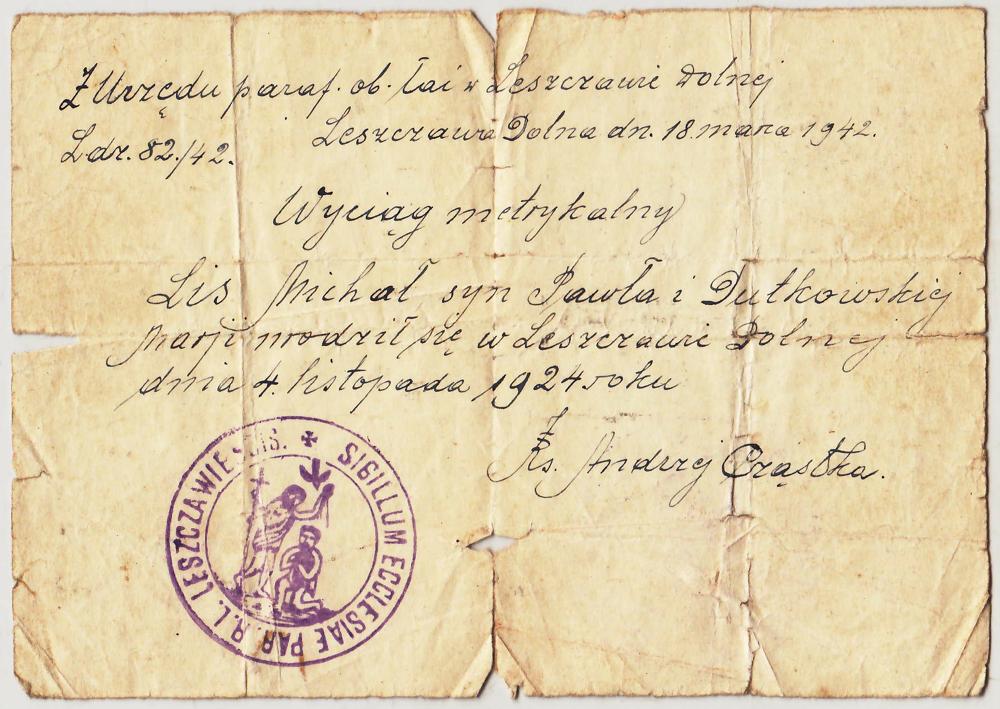 Z Urzędu paraf. ob. łać w Leszczawie Dolnej
Leszczawa Dolna dn. 18 marca 1942.
L. dz. 82./42.
Wyciąg metrykalny
Lis Michał syn Pawła i Dutkowskiej
Marji urodził się w Leszczawie Dolnej
dnia 4. listopada 1924 roku
Ks. Andrzej Cząstka.
SIGILLUM ECCLESIAE PAR. R.L. LESZCZAWIENSIS.